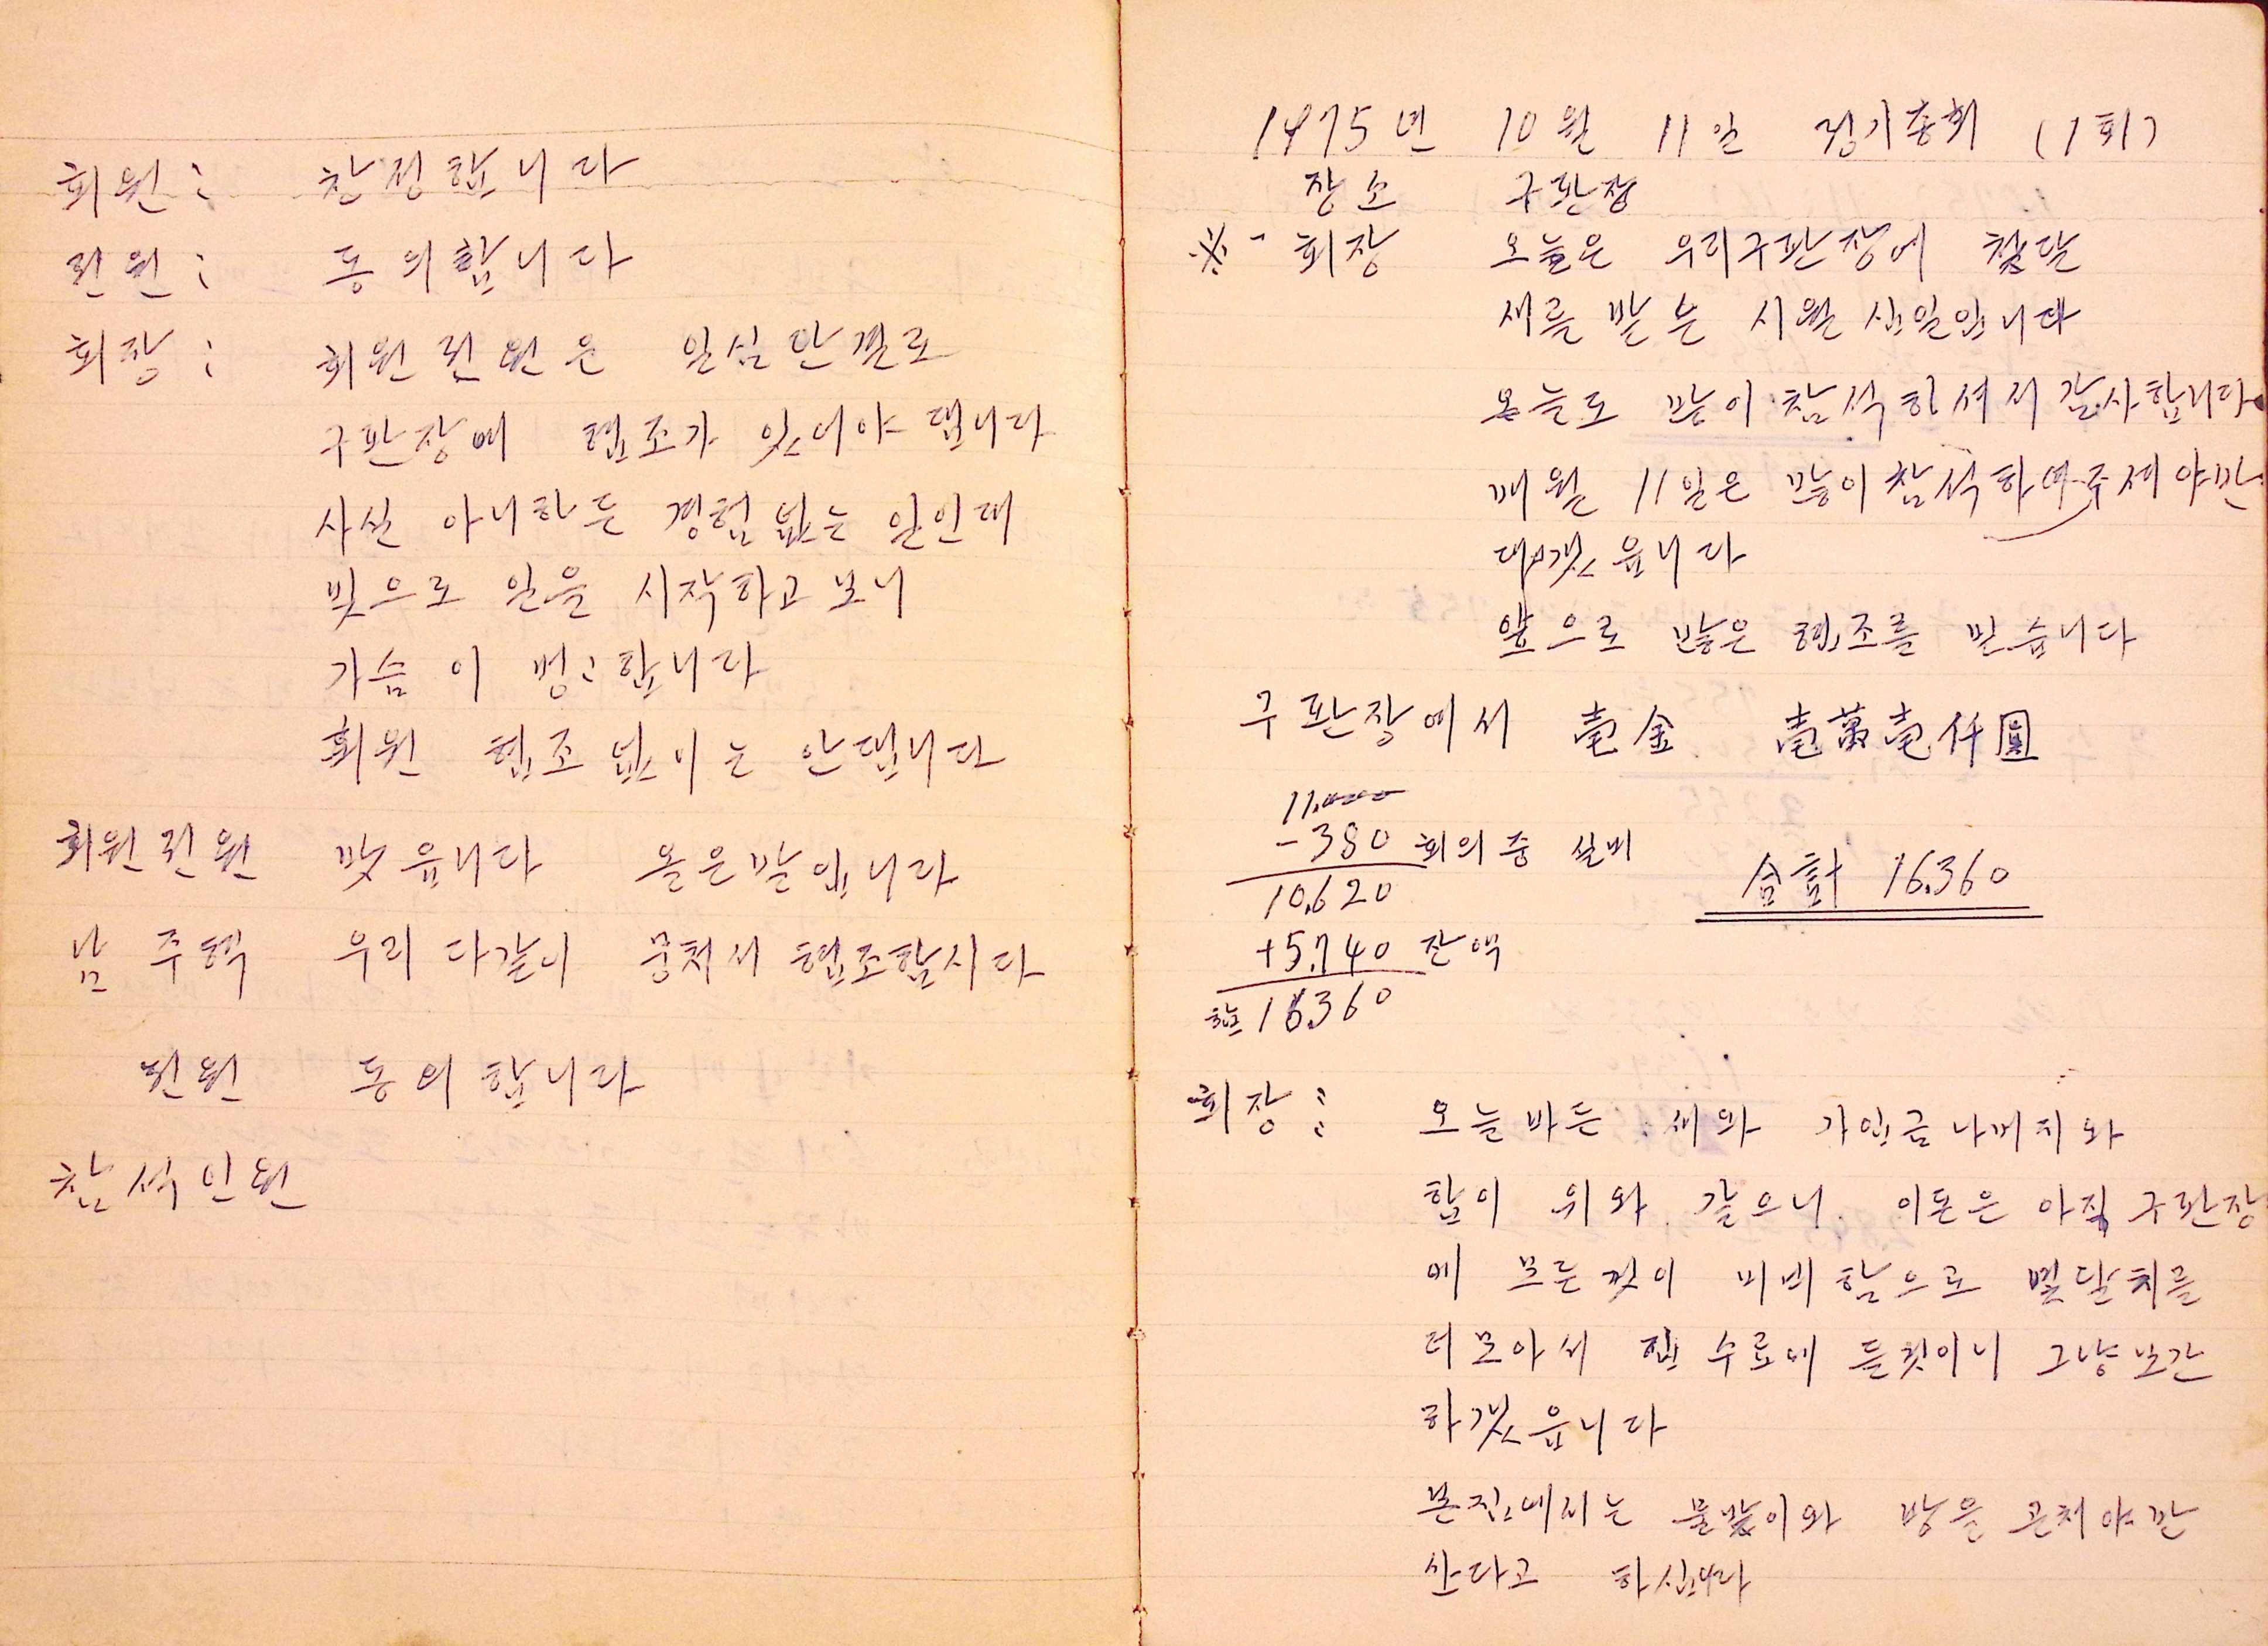 회원: 찬성합니다
전원: 동의합니다
회장: 회원전원은 일심단결로
구판장에 협조가 있어야 댑니다
사실 아니하든 경험없는 일인대
빚으로 일을 시작하고 보니
가슴이 벙:합니다
회원 협조없이는 안댑니다
회원전원 맞읍니다 올은말입니다
남주택 우리 다같이 뭉처서 협조합시다
전원 동의합니다
참석인원
1975년 10월 11일 정기총회 (1회)
장소 구판장
※- 회장 오늘은 우리구판장에 첫달
세를 받는 시월 십일일입니다
오늘도 많이 참석하셔서 감사합니다
매월 11일은 많이 참석하여주셰야만
대겠읍니다
앞으로 많은 협조를 믿습니다
구판장에서 壱金 壱萬壱仟圓
11.000
-380 회의중 실비
10,620
合計 16,360
+5,740 잔액
합 16,360
회장: 오늘바든 세와 가입금나머지와
합이 위와 같으니 이돈은 아직 구판장
에 모든것이 미비함으로 몇달치를
더모아서 수료에 들것이니 그냥보관
하겠읍니다
본집에서는 물받이와 방을 곤처야만
산다고 하십니다